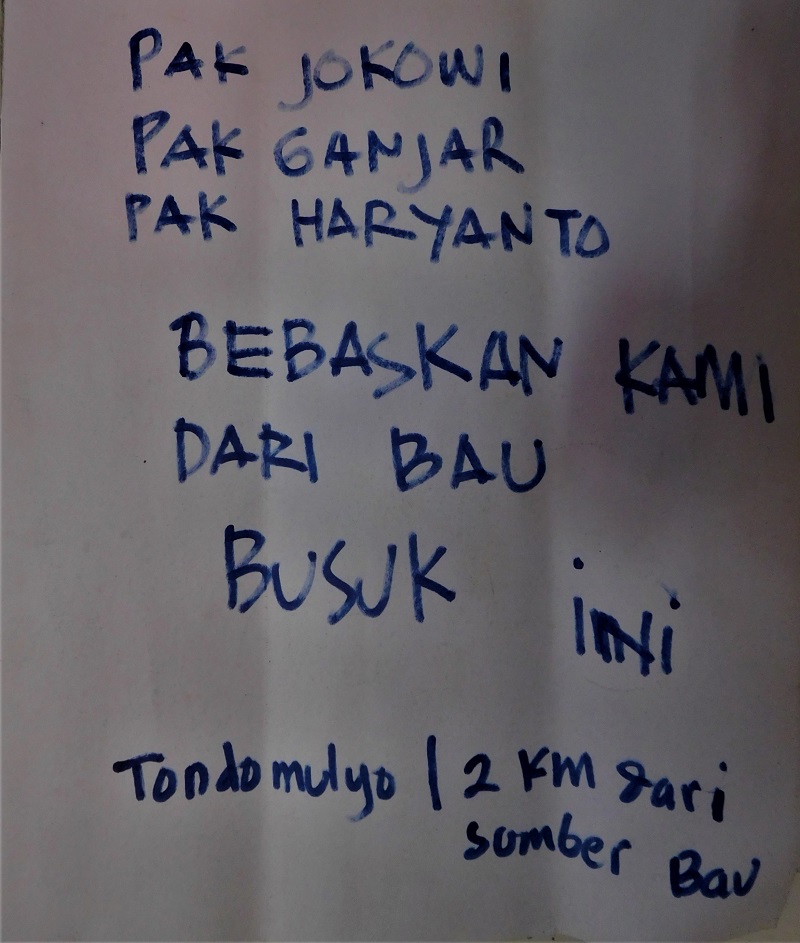 PAK JOKOWI
PAK GANJAR
PAK HARYANTO
BEBASKAN KAMI
DARI BAU
BUSUK iNi
Tondomulyo | 2 KM dari
sumber Bau